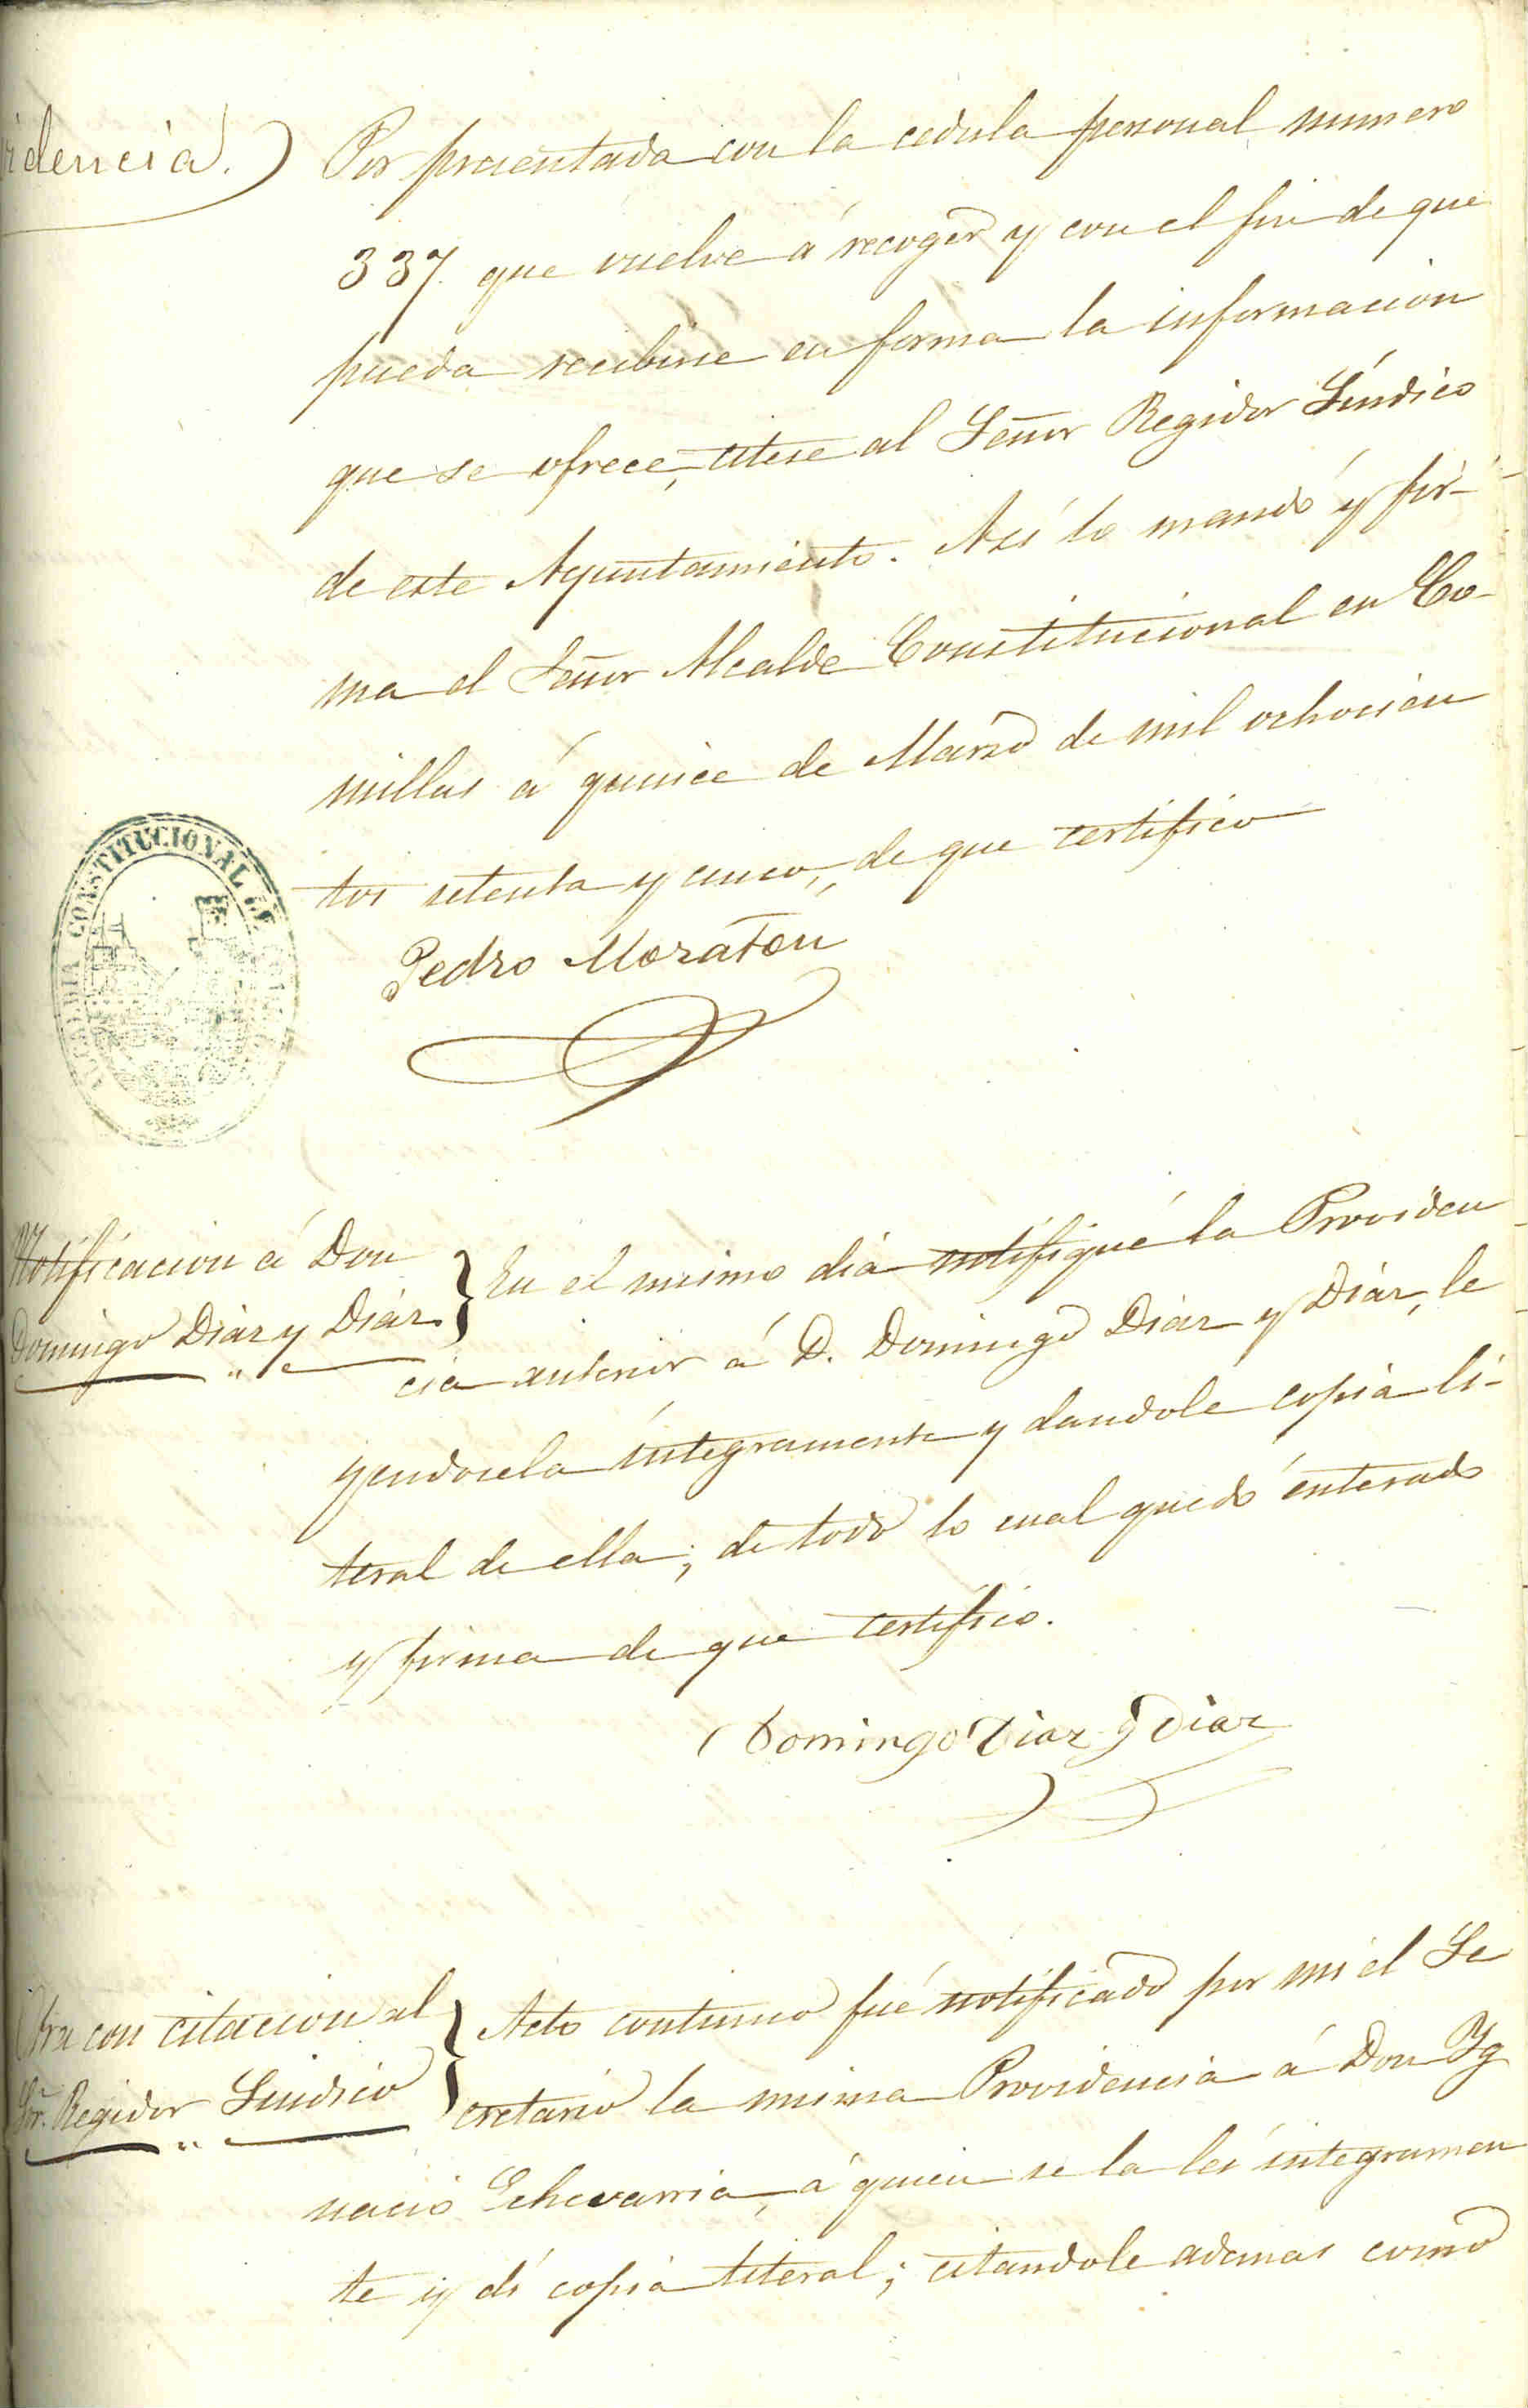 idencia.)
Por presentada con la cedula personal numero
337. que vuelve á recoger y con el fin de que
pueda recibirse en forma la informacion
que se ofrece, citese al Señor Regidor Síndico
de este Ayuntamiento. Así lo mandó y fir-
ma el Señor Alcalde Constitucional en Co-
millas á quince de Marzo de mil ochocien
tos setenta y cinco, de que certifico
ALCALDIA CONSTITUCIONAL DE
Pedro Moraton
Notificacion á Don
Domingo Diaz y Diaz.
En el mismo dia notifiqué la Providen
cia anterior á D. Domingo Diaz y Diaz, le
yendosela íntegramente y dandole copia li-
teral de ella; de todo lo cual quedó enterado
y firma de que certifico.
Domingo Diaz y Diaz
Otra con citacion al
Sr. Regidor Sindico
Acto continuo fué notificado por mi el Se
cretario la misma Providencia á Don Yg
nacio Echevarria, á quien se la leí integramen
te y dí copia literal; citandole ademas como